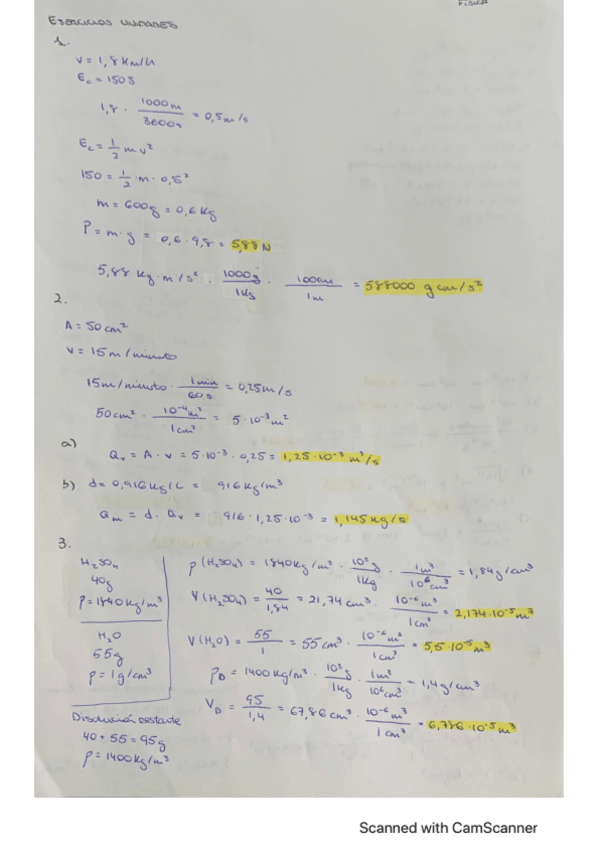 FÍSICA
EJERCICIOS UNIDADES
1.
V = 1,8 Km/h
Ec = 150J
1,8 · 1000m / 3600s = 0,5 m/s
Ec = 1/2 m v²
150 = 1/2 · m · 0,5²
m = 600g = 0,6 Kg
P = m · g = 0,6 · 9,8 = 5,88 N
5,88 Kg · m/s² · 1000g / 1Kg · 100cm / 1m = 588000 g cm/s²
2.
A = 50 cm²
V = 15 m/minuto
15 m/minuto · 1 min / 60 s = 0,25 m/s
50 cm² · 10⁻⁴ m² / 1 cm² = 5·10⁻³ m²
a)
Qv = A · v = 5·10⁻³ · 0,25 = 1,25·10⁻³ m³/s
b) d = 0,916 Kg/L = 916 Kg/m³
Qm = d · Qv = 916 · 1,25·10⁻³ = 1,145 Kg/s
3.
H₂SO₄
40g
ρ = 1840 Kg/m³
H₂O
55g
ρ = 1 g/cm³
Disolución restante
40 + 55 = 95g
ρ = 1400 Kg/m³
ρ (H₂SO₄) = 1840 Kg/m³ · 10³g / 1Kg · 1m³ / 10⁶ cm³ = 1,84 g/cm³
V (H₂SO₄) = 40 / 1,84 = 21,74 cm³ · 10⁻⁶ m³ / 1 cm³ = 2,174·10⁻⁵ m³
V (H₂O) = 55 / 1 = 55 cm³ · 10⁻⁶ m³ / 1 cm³ = 5,5·10⁻⁵ m³
ρD = 1400 Kg/m³ · 10³g / 1Kg · 1m³ / 10⁶cm³ = 1,4 g/cm³
VD = 95 / 1,4 = 67,86 cm³ · 10⁻⁶ m³ / 1 cm³ = 6,786·10⁻⁵ m³
Scanned with CamScanner